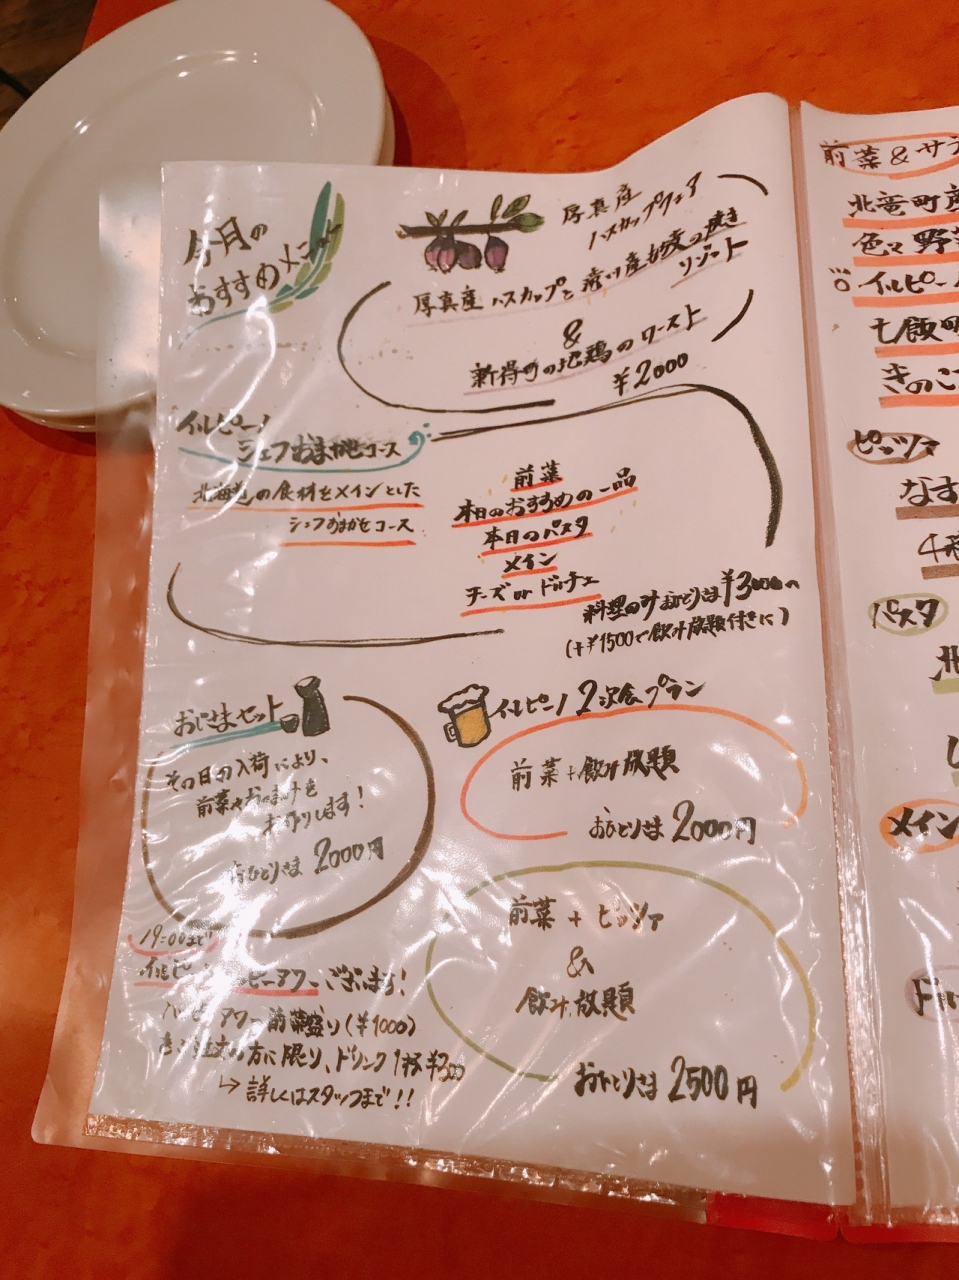 今月の
おすすめメニュー
厚真産
ハスカップフェア
厚真産ハスカップと
焼き
リゾット
&
新得町の地鶏のロースト
¥2000
イルピーノ
シェフおまかせコース
北海道の食材をメインとした
シェフおまかせコース
前菜
本日のおすすめの一品
本日のパスタ
メイン
チーズ or ドルチェ
料理のみおひとりさま¥3000
(+¥1500で飲み放題付きに)
おじさまセット
その日の入荷により、
前菜やおつまみを
お作りします!
おひとりさま 2000円
19:00まで
イルピーノ ハッピーアワーございます!
ハッピーアワー前菜盛り(¥1000)
をご注文の方に限り、ドリンク1杯¥300
↳詳しくはスタッフまで!!
イルピーノ2次会プラン
前菜+飲み放題
おひとりさま 2000円
前菜 + ピッツァ
&
飲み放題
おひとりさま 2500円
前菜&サラ
北竜町産
色々野菜
イルピーノ
七飯町
きのこ
ピッツァ
なす
4種
パスタ
北
メイン